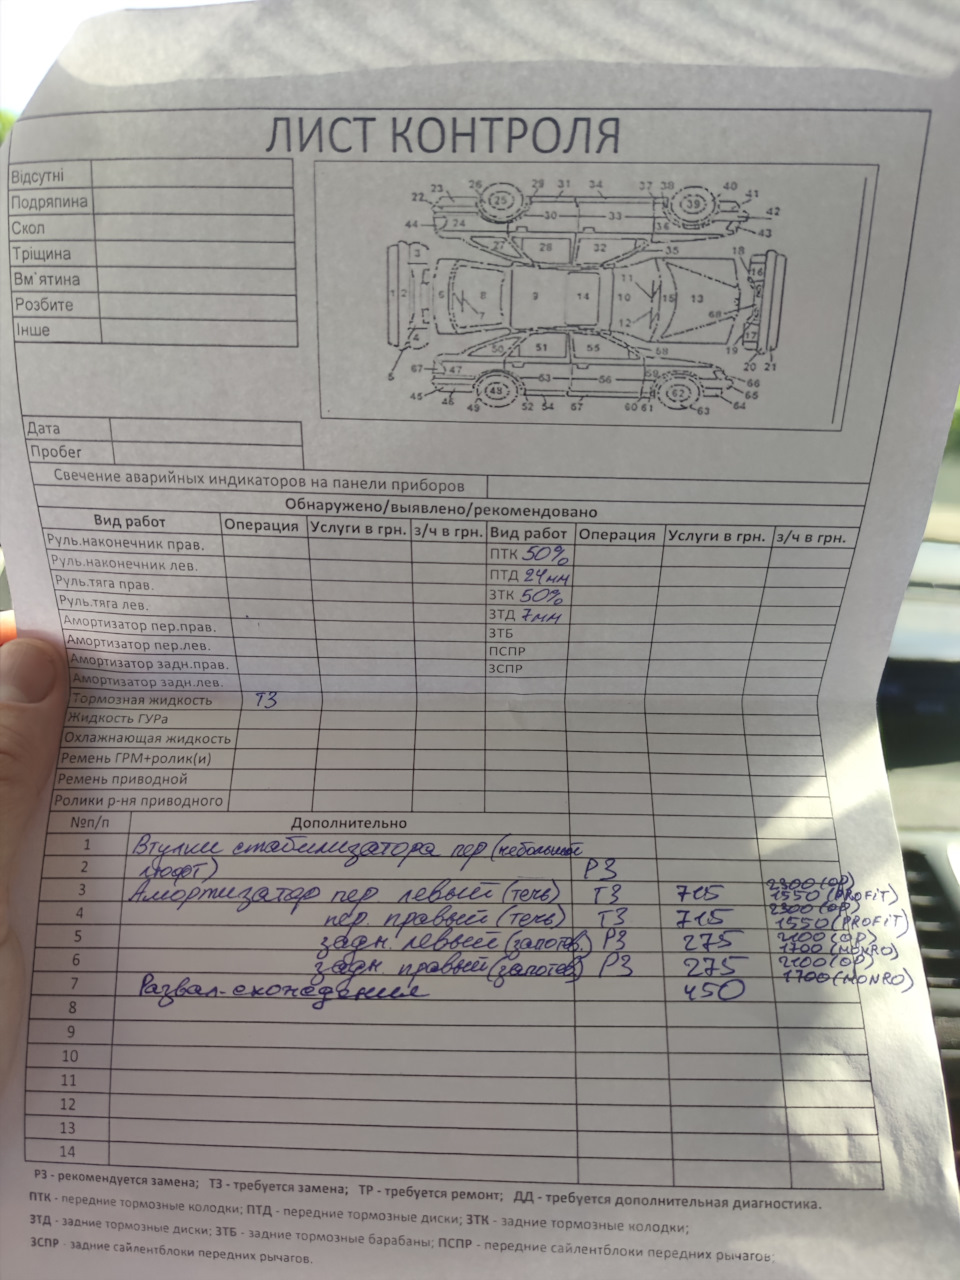 ЛИСТ КОНТРОЛЯ
Відсутні
Подряпина
Скол
Тріщина
Вм`ятина
Розбите
Інше
Дата
Пробег
Свечение аварийных индикаторов на панели приборов
Обнаружено/выявлено/рекомендовано
Вид работ Операция Услуги в грн. з/ч в грн. Вид работ Операция Услуги в грн. з/ч в грн.
Руль.наконечник прав. ПТК 50%
Руль.наконечник лев. ПТД 24мм
Руль.тяга прав. ЗТК 50%
Руль.тяга лев. ЗТД 7мм
Амортизатор пер.прав. ЗТБ
Амортизатор пер.лев. ПСПР
Амортизатор задн.прав. ЗСПР
Амортизатор задн.лев.
Тормозная жидкость ТЗ
Жидкость ГУРа
Охлажнающая жидкость
Ремень ГРМ+ролик(и)
Ремень приводной
Ролики р-ня приводного
№п/п Дополнительно
1 Втулки стабилизатора пер (небольшой
2 люфт) РЗ
2300 (ОР)
3 Амортизатор пер левый (течь) ТЗ 715 1550 (PROFIT)
2300 (ОР)
4 пер. правый (течь) ТЗ 715 1550 (PROFIT)
2100 (ОР)
5 задн. левый (запотев.) РЗ 275 1700 (MONRO)
2100 (ОР)
6 задн. правый (запотев) РЗ 275 1700 (MONRO)
7 Развал-схождения 450
8
9
10
11
12
13
14
РЗ - рекомендуется замена; ТЗ - требуется замена; ТР - требуется ремонт; ДД - требуется дополнительная диагностика.
ПТК - передние тормозные колодки; ПТД - передние тормозные диски; ЗТК - задние тормозные колодки;
ЗТД - задние тормозные диски; ЗТБ - задние тормозные барабаны; ПСПР - передние сайлентблоки передних рычагов;
ЗСПР - задние сайлентблоки передних рычагов.